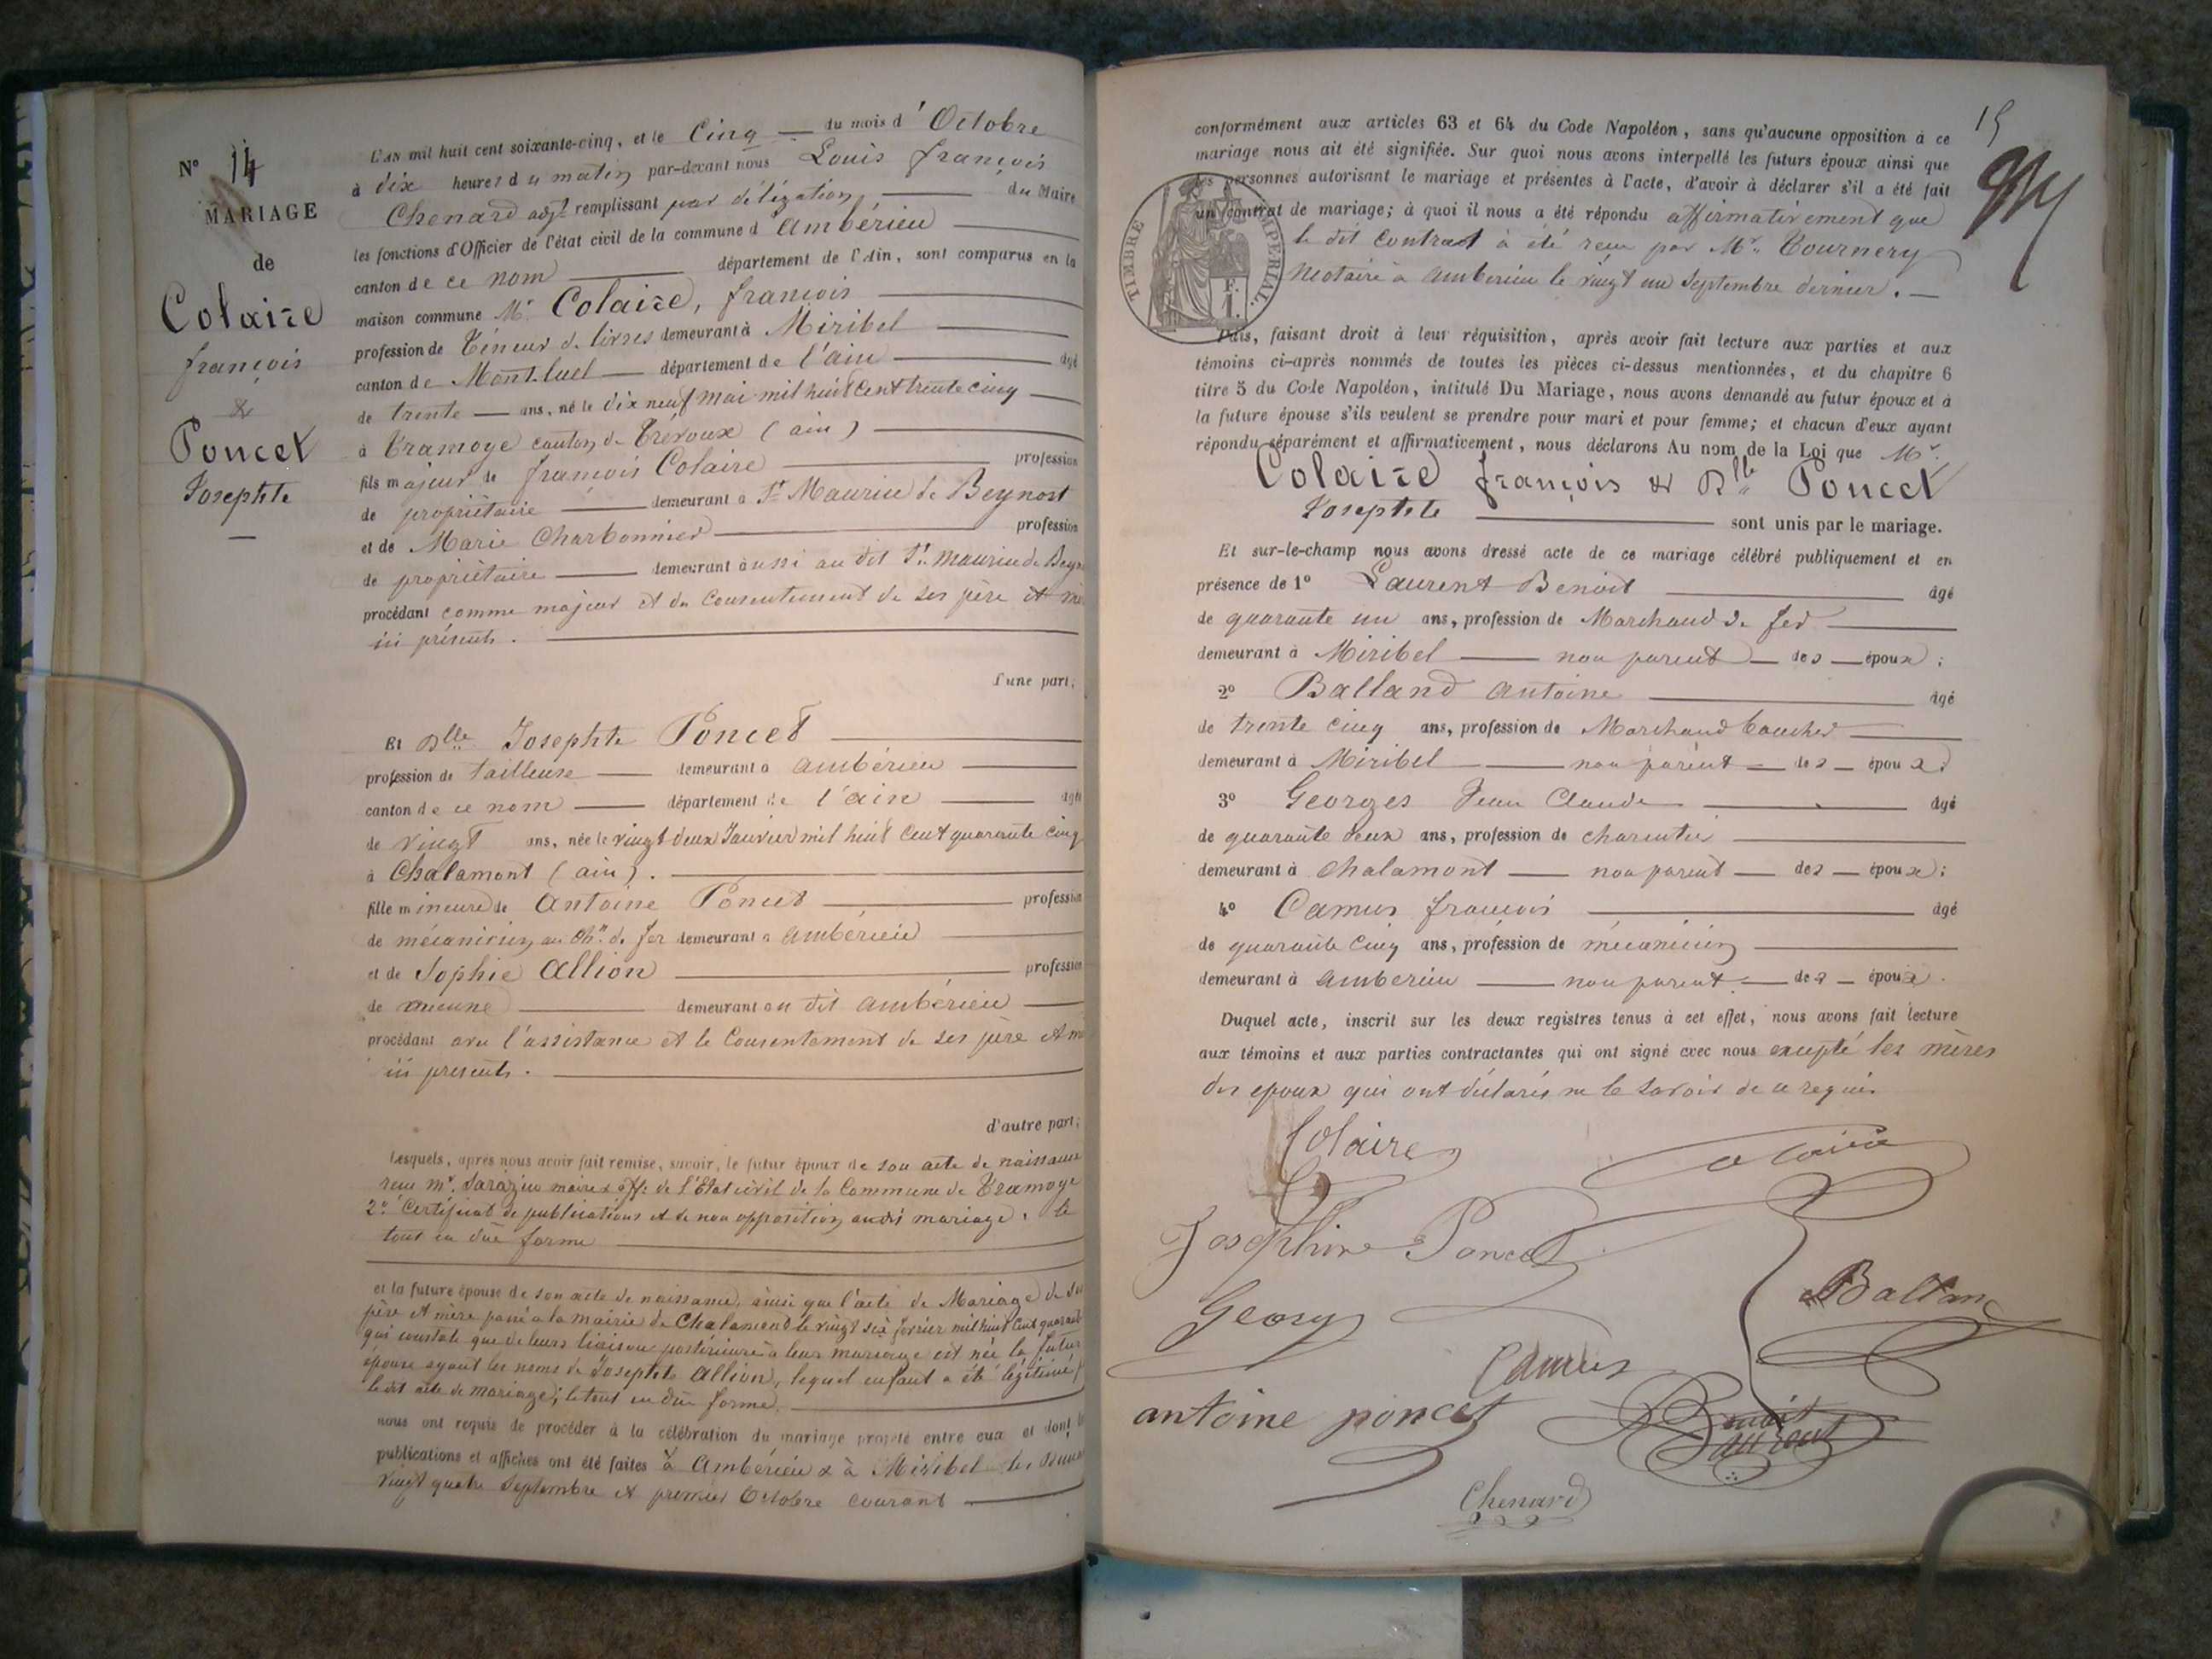 N° 14
MARIAGE
de
Colaire
françois
&
Poncet
Josephte
L'AN mil huit cent soixante-cinq, et le Cinq du mois d'Octobre
à dix heures du matin par-devant nous Louis françois
Chenard adjt remplissant par délégation du Maire
les fonctions d'Officier de l'état civil de la commune d'ambérieu
canton de ce nom département de l'Ain, sont comparus en la
maison commune Mr Colaire, françois
profession de Téneur de livres demeurant à Miribel
canton de Montluel département de l'ain âgé
de trente ans, né le dix neuf mai mil huit cent trente cinq
à Tramoye canton de Trevoux (ain)
fils majeur de françois Colaire profession
de propriétaire demeurant à St Maurice de Beynost
et de Marie Charbonnier profession
de propriétaire demeurant aussi au dit St Maurice de Beyn
procédant comme majeur et du consentement de ses père et mè
ici présents.
d'une part;
Et Dlle Josephte Poncet
profession de tailleuse demeurant à ambérieu
canton de ce nom département de l'ain âgée
de vingt ans, née le vingt deux Janvier mil huit cent quarante cinq
à Chalamont (ain).
fille mineure de Antoine Poncet profession
de mécanicien au chn de fer demeurant à ambérieu
et de Sophie Allion profession
de aucune demeurant au dit ambérieu
procédant avec l'assistance et le consentement de ses père et mè
ici présents.
d'autre part;
Lesquels, après nous avoir fait remise, savoir, le futur époux de son acte de naissance
reçu mr. Sarazin maire & off: de l'Etat civil de la Commune de Tramoye
2° Certificat de publications et de non opposition audit mariage, le
tout en due forme
et la future épouse de son acte de naissance, ainsi que l'acte de Mariage de ses
père et mère passé à la mairie de Chalamont le vingt six février mil huit cent quarante
qui constate que de leurs liaison postérieure à leur mariage est née la future
épouse ayant les noms de Josephte Allion, lequel enfant a été légitimé p
le dit acte de mariage; le tout en due forme.
nous ont requis de procéder à la célébration du mariage projeté entre eux et dont les
publications et affiches ont été faites à Ambérieu & à Miribel les
vingt quatre Septembre et premier Octobre courant
15
conformément aux articles 63 et 64 du Code Napoléon, sans qu'aucune opposition à ce
mariage nous ait été signifiée. Sur quoi nous avons interpellé les futurs époux ainsi que
les personnes autorisant le mariage et présentes à l'acte, d'avoir à déclarer s'il a été fait
un contrat de mariage; à quoi il nous a été répondu affirmativement que
le dit contrat à été reçu par Mr. Tournery
Notaire à amberieu le vingt un Septembre dernier.
TIMBRE IMPERIAL
F.
1.
Puis, faisant droit à leur réquisition, après avoir fait lecture aux parties et aux
témoins ci-après nommés de toutes les pièces ci-dessus mentionnées, et du chapitre 6
titre 5 du Code Napoléon, intitulé Du Mariage, nous avons demandé au futur époux et à
la future épouse s'ils veulent se prendre pour mari et pour femme; et chacun d'eux ayant
répondu séparément et affirmativement, nous déclarons Au nom de la Loi que Mr.
Colaire françois & Dlle Poncet
Josephte sont unis par le mariage.
Et sur-le-champ nous avons dressé acte de ce mariage célébré publiquement et en
présence de 1° Laurent Benoit âgé
de quarante un ans, profession de Marchand de fer
demeurant à Miribel non parent des époux;
2° Balland antoine âgé
de trente cinq ans, profession de Marchand boucher
demeurant à Miribel non parent des époux.
3° Georges Jean Claude âgé
de quarante deux ans, profession de charcutier
demeurant à Chalamont non parent des époux;
4° Camus françois âgé
de quarante cinq ans, profession de mécanicien
demeurant à amberieu non parent des époux.
Duquel acte, inscrit sur les deux registres tenus à cet effet, nous avons fait lecture
aux témoins et aux parties contractantes qui ont signé avec nous excepté les mères
des epoux qui ont déclarés ne le savoir de ce requis
Colaire
Colaire
Josephine Poncet
Balland
Georg
Camus
antoine poncet
Benoit
Laurent
Chenard